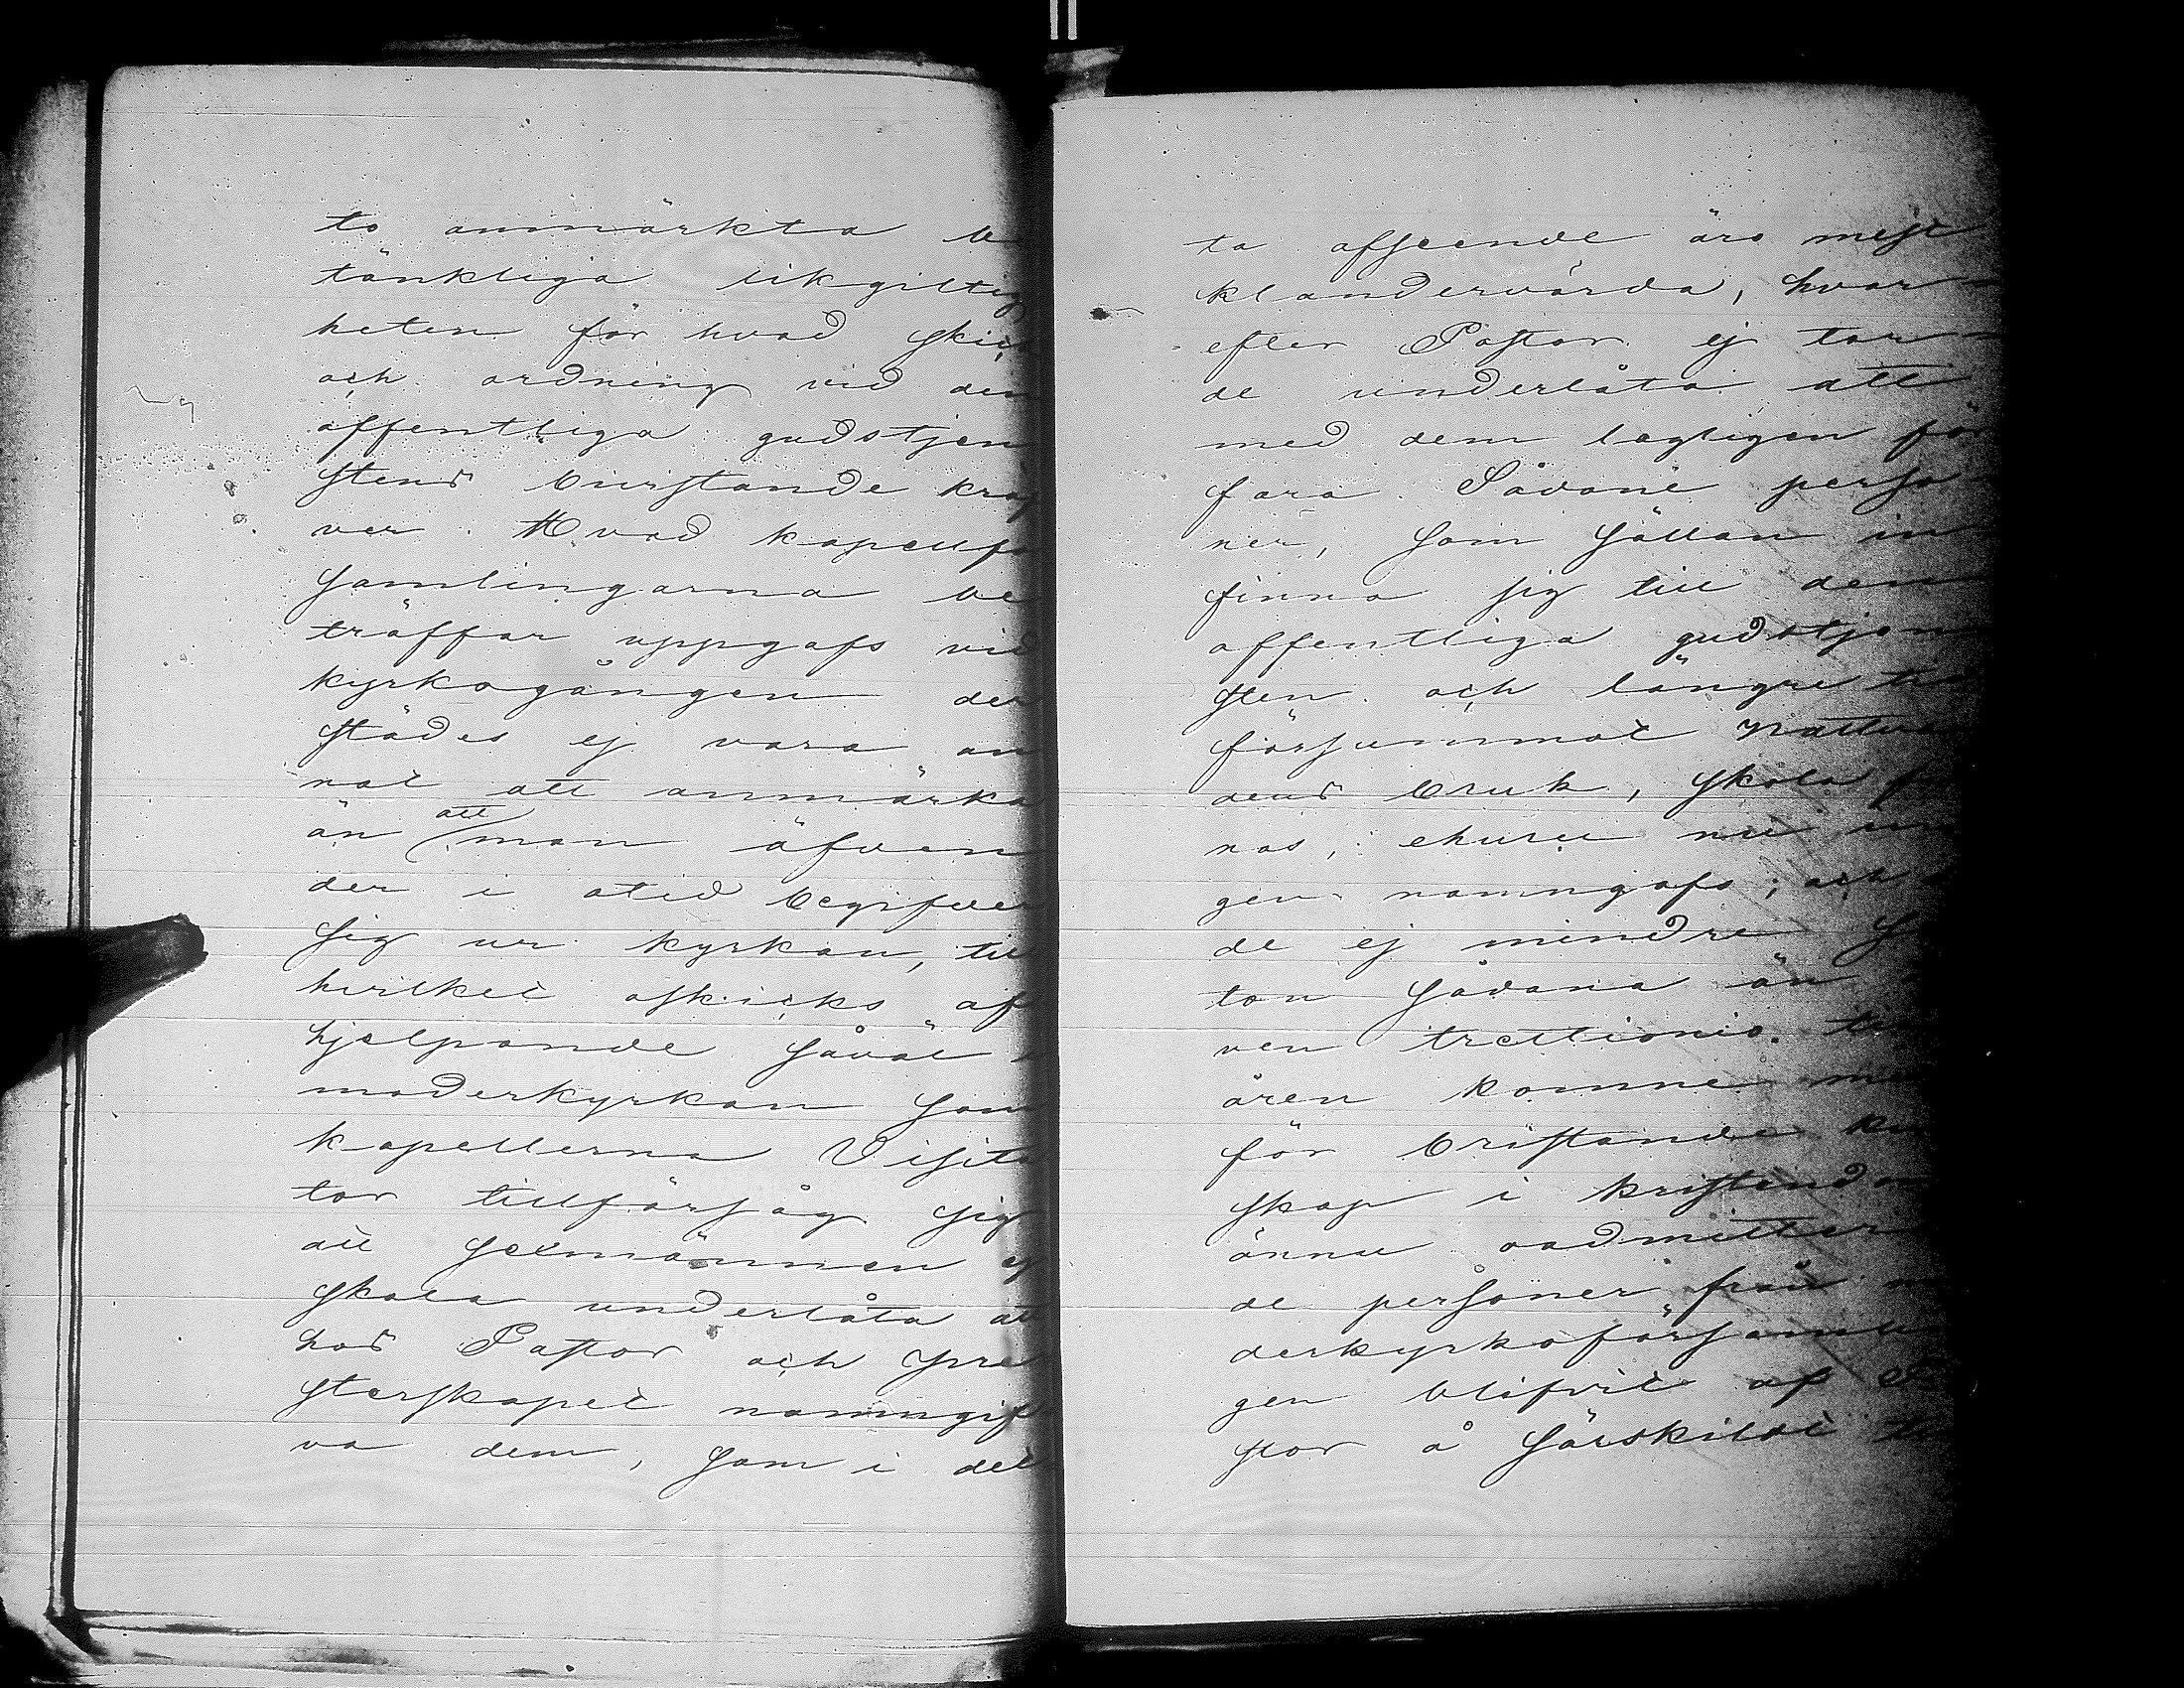 to anmärkta be
tänkliga likgiltig
heten för hvad skick
och ordning vid den
offentliga gudstjen
stens bivistande kräf
ver. Hvad kapellför
samlingarna be
träffar uppgafs vid
kyrkogången der
städes ej vara an
nat att anmärka
än att man äfven
der i otid begifver
sig ur kyrkan, till
hvilket oskicks af
hjelpande såväl i
moderkyrkan som
kapellerna Visita
tor tillförsåg sig
att sexmännen ej
skola underlåta att
hos Pastor och Pre
sterskapet namngif
va dem, som i det
ta afseende äro mest
klandervärda, hvar
efter Pastor ej tor
de underlåta att
med dem lagligen för
fara. Sådane perso
ner, som sällan in
finna sig till den
offentliga gudstjen
sten och längre tid
försummat Nattvar
dens bruk, skola fin
nas, ehuru nu in
gen namngafs; och
de ej mindre
ton sådana än
ven trettionio. till
åren komne men
för bristande kun
skap i kristendom
ännu oadmittera
de personer från mo
derkyrkoförsamlin
gen blifvit af Pa
stor å särskildt